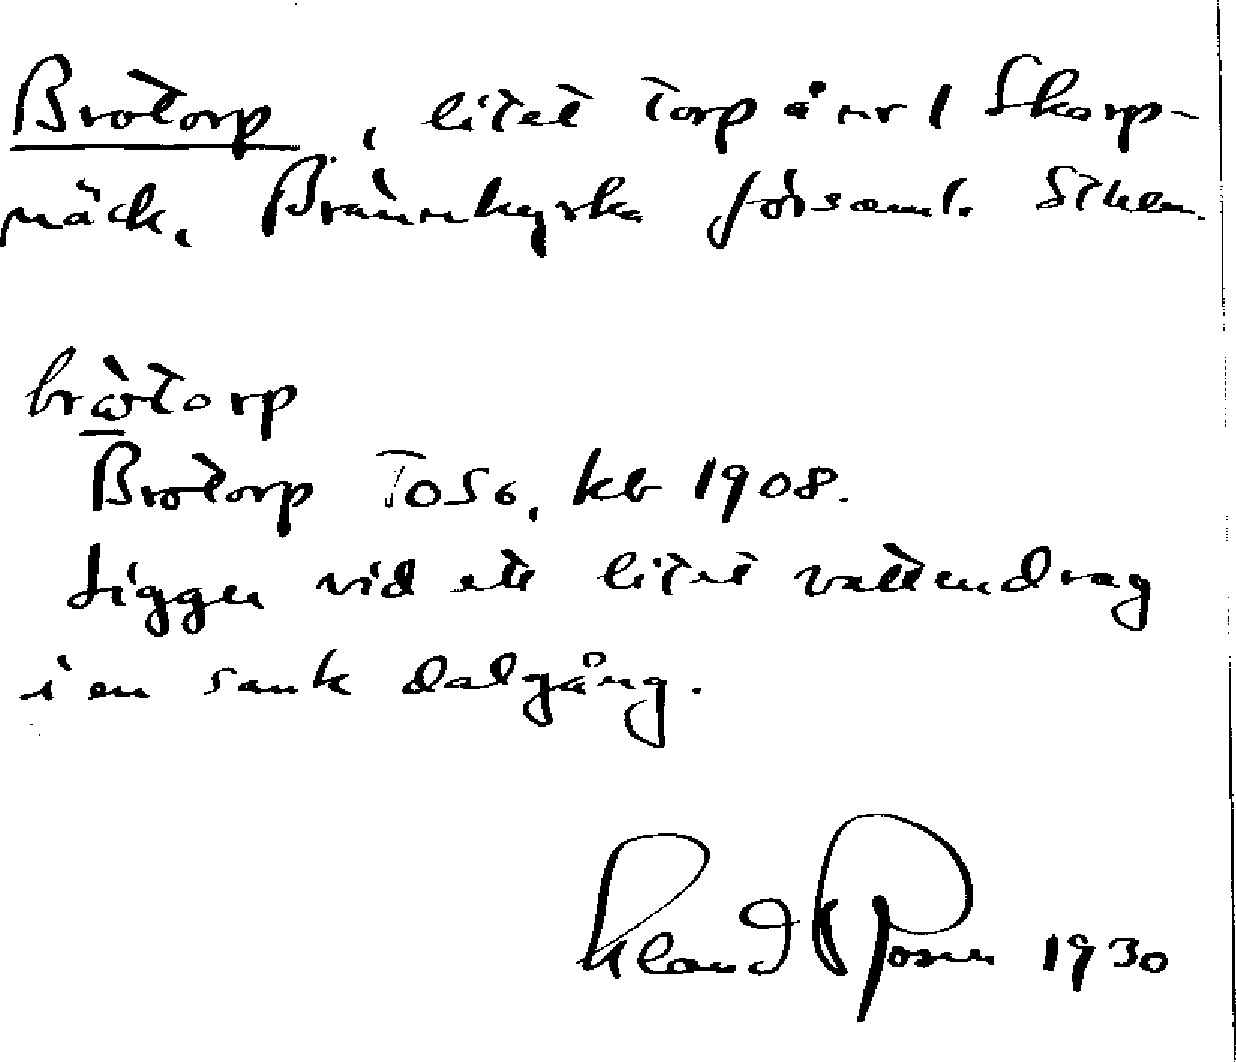 Brotorp, litet torp å nr 1 Skarp-
näck, Brännkyrka församl. Sthlm.
bròtorp
Brotorp T056, kb 1908.
Ligger vid ett litet vattendrag
i en sank dalgång.
1930